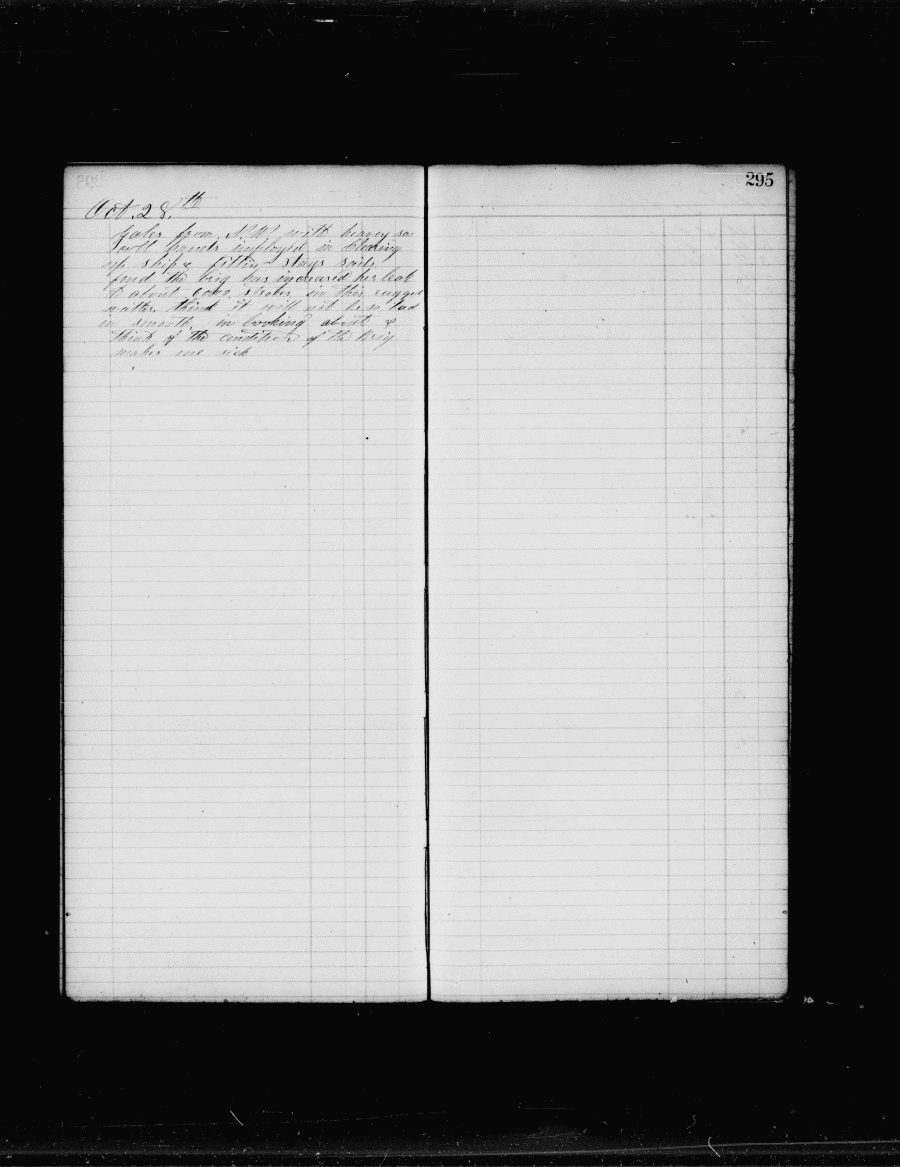 295
Oct. 28.th
gales from N.W. with heavy sea
all hands imployed in clearing
up ship & fitting stays sails
find the brig has increased her leak
to about 6000 strokes in this rugged
water think it will not be so bad
in smooth, in looking about &
think of the condition of the Brig
makes me sick